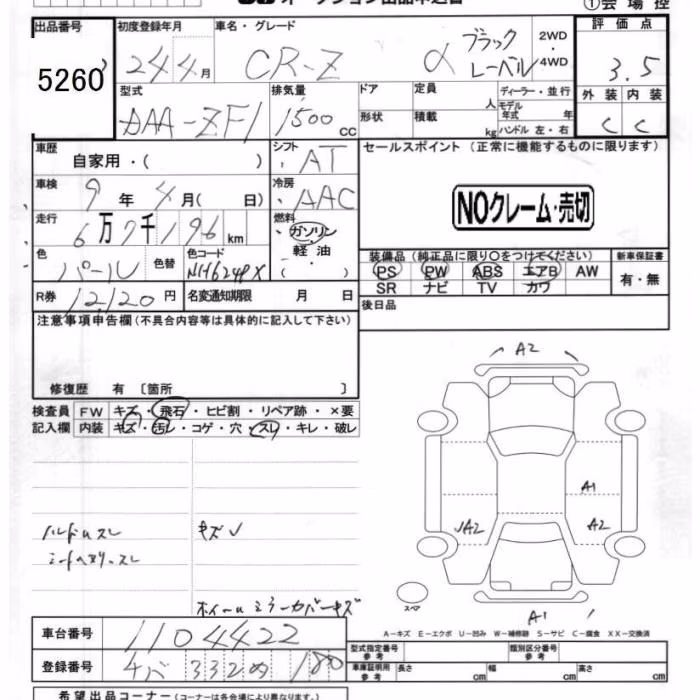 ①会場控
出品番号 初度登録年月 車名・グレード 評価点
5260 24年4月 CR-Z α ブラックレーベル 2WD・4WD 3.5
型式 排気量 ドア 定員 人 ディーラー・並行 外装 内装
DAA-ZF1 1500 CC 形状 積載 kg モデル年式 年 ハンドル 左・右 C C
車歴 自家用・( ) シフト AT セールスポイント (正常に機能するものに限ります)
車検 9年 4月( 日) 冷房 AAC
NOクレーム・売切
走行 6万7千196km 燃料 ガソリン・軽油・( )
色 パール 色替 色コード NH624PX
装備品 (純正品に限り○をつけてください) 新車保証書
PS PW ABS エアB AW 有・無
SR ナビ TV カワ
R券 12,120円 名変通知期限 月 日
後日品
注意事項申告欄(不具合内容等は具体的に記入して下さい)
A2
修復歴 有 〔箇所 〕
検査員 FW キズ・飛石・ヒビ割・リペア跡・×要
記入欄 内装 キズ・汚レ・コゲ・穴・スレ・キレ・破レ
A1
A2 A2
ハンドルスレ キズ
スペア
ホイールミラーカバーキズ A1
A-キズ E-エクボ U-凹み W-補修跡 S-サビ C-腐食 XX-交換済
車台番号 1104422
型式指定番号 参考 類別区分番号 参考
登録番号 332 180
車庫証明用 参考 長さ cm 幅 cm 高さ cm
希望出品コーナー (コーナーは各会場により異なります。)